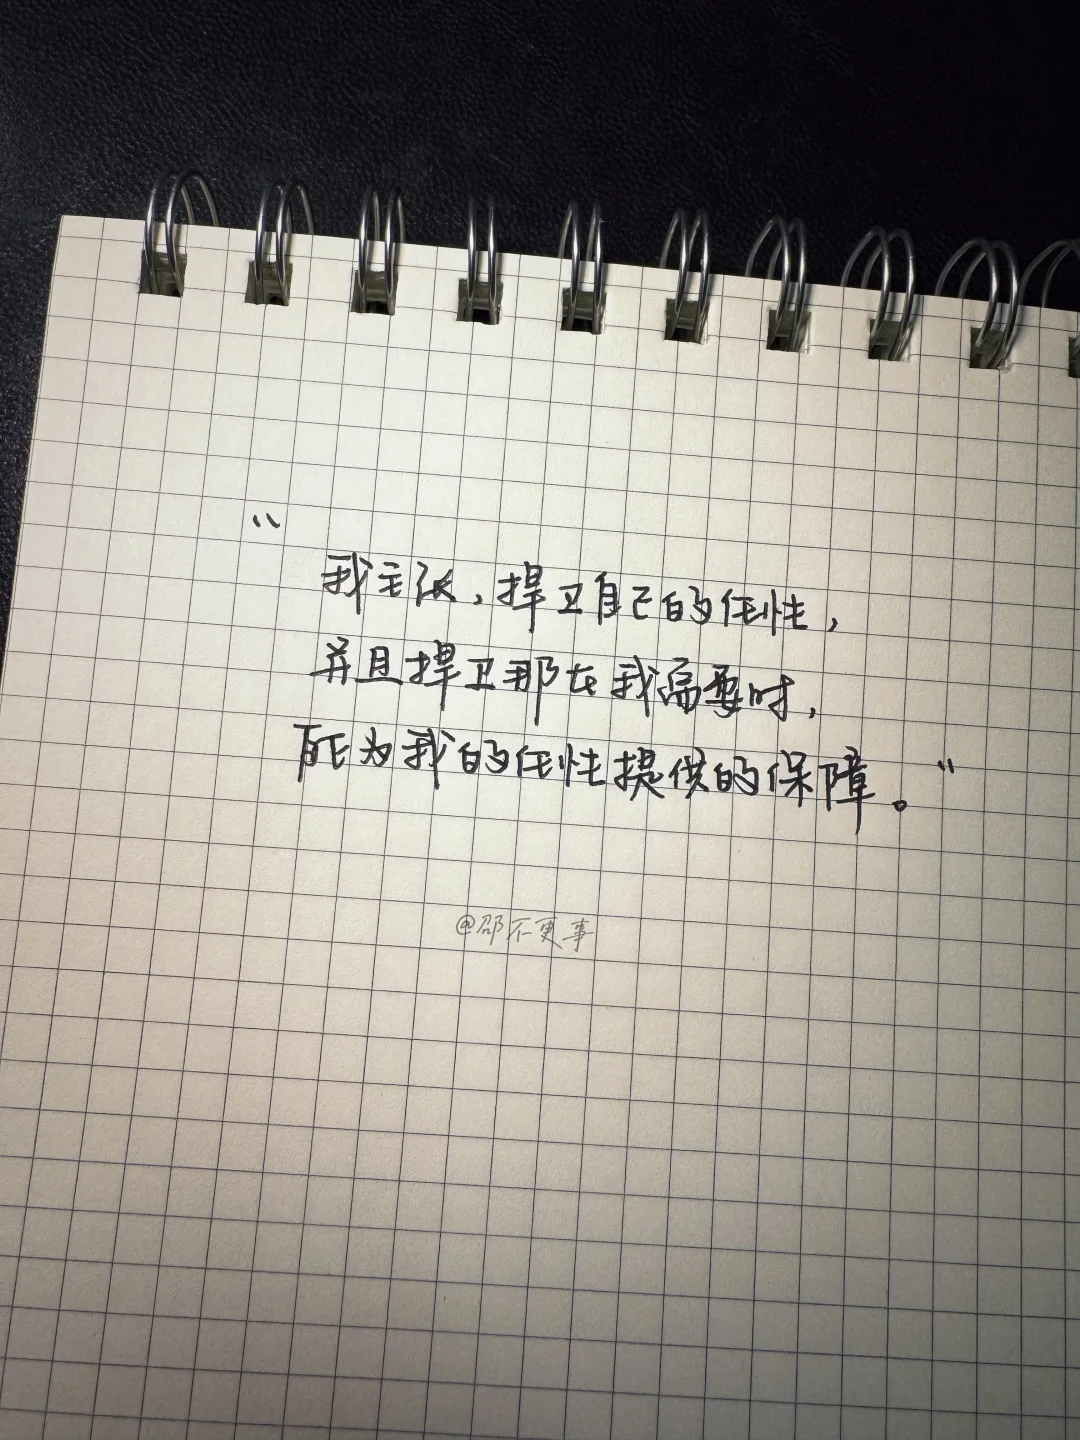 “
我主张，捍卫自己的任性，
并且捍卫那在我需要时，
能为我的任性提供的保障。”
@邵不更事